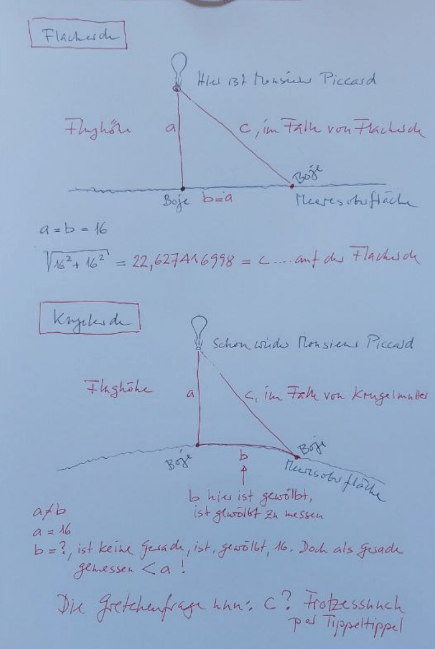 Flacherde
Hier ist Monsieur Piccard
Flughöhe
a
c, im Falle von Flacherde
Boje
Boje
b=a
Meeresoberfläche
a = b = 16
√16² + 16² = 22,627416998 = c .... auf der Flacherde
Kugelerde
Schon wieder Monsieur Piccard
Flughöhe
a
c, im Falle von Krugelmuller
Boje
b
Boje
Meeresoberfläche
b hier ist gewölbt,
ist gewölbt zu messen
a≠b
a = 16
b = ?, ist keine Gerade, ist, gewölbt, 16. Doch als Gerade
gemessen < a !
Die Gretchenfrage nun: c?
per Tippeltippel